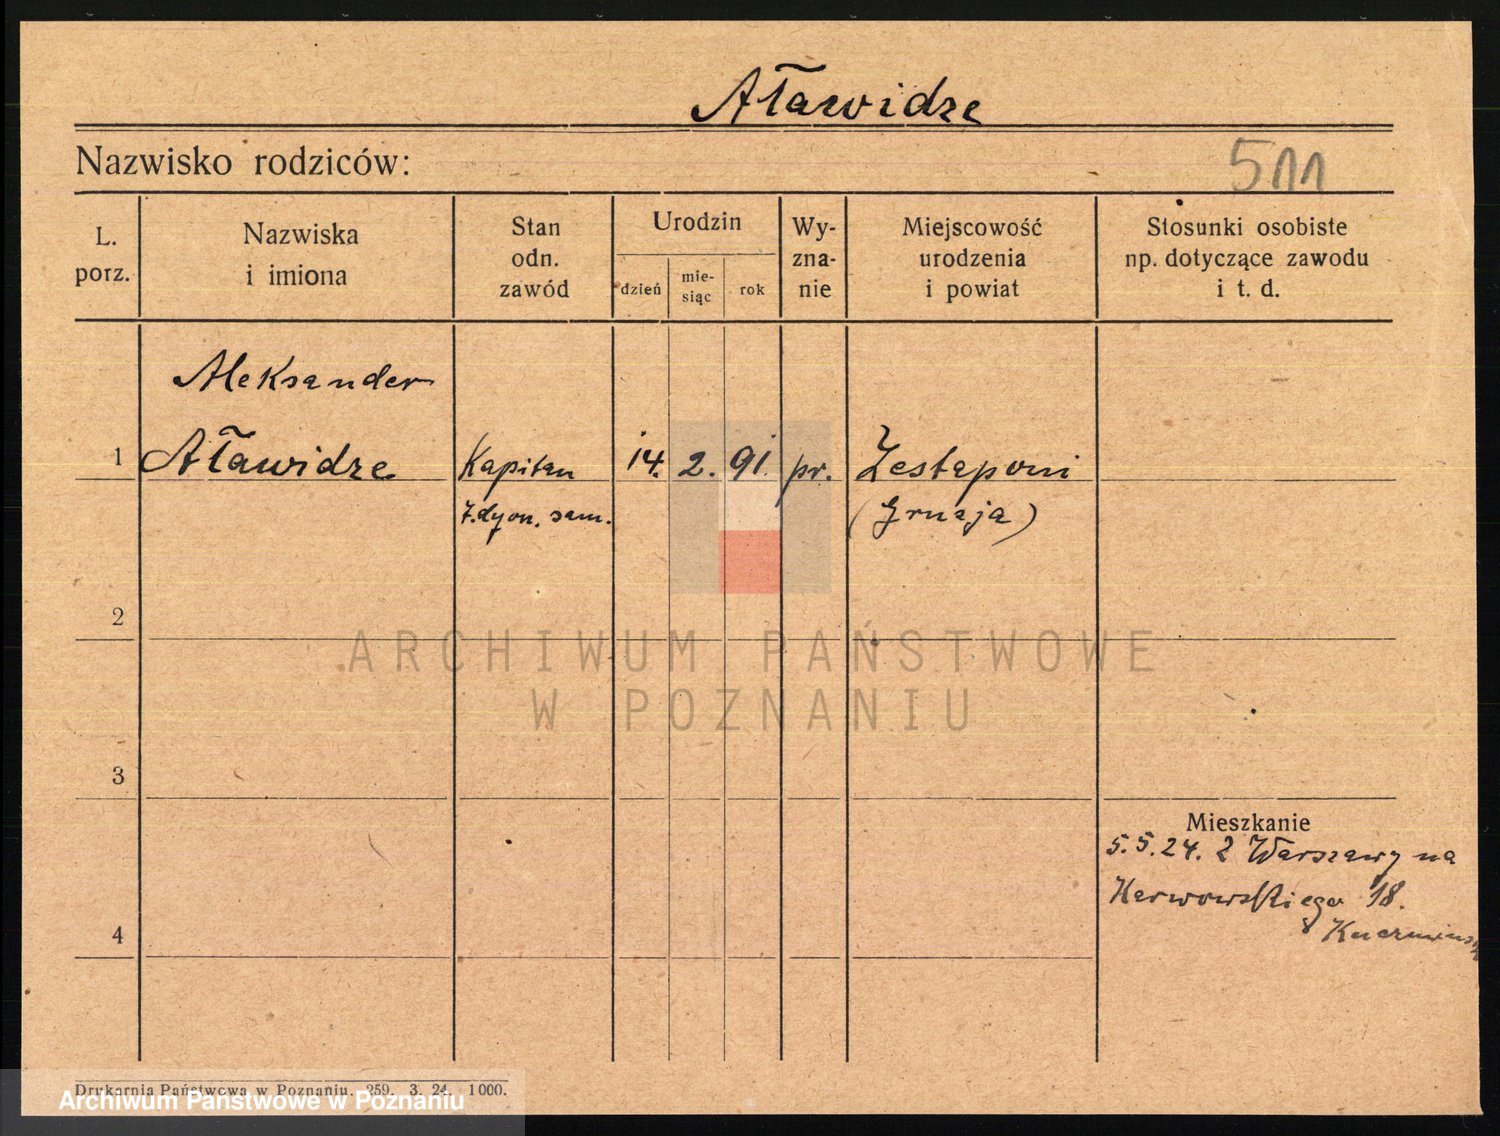 Aławidze
Nazwisko rodziców:
511
L. porz.
Nazwiska i imiona
Stan odn. zawód
Urodzin
dzień
mie- siąc
rok
Wy- zna- nie
Miejscowość urodzenia i powiat
Stosunki osobiste np. dotyczące zawodu i t. d.
Aleksander
1 Aławidze Kapitan 14. 2. 91. pr. Zestaponi
7. dyon. sam. (Gruzja)
2
ARCHIWUM PAŃSTWOWE
W POZNANIU
3
Mieszkanie
5.5.24. z Warszawy na
Karwowskiego 18.
4
Drukarnia Państwowa w Poznaniu. 259. 3. 24. 1000.
Archiwum Państwowe w Poznaniu